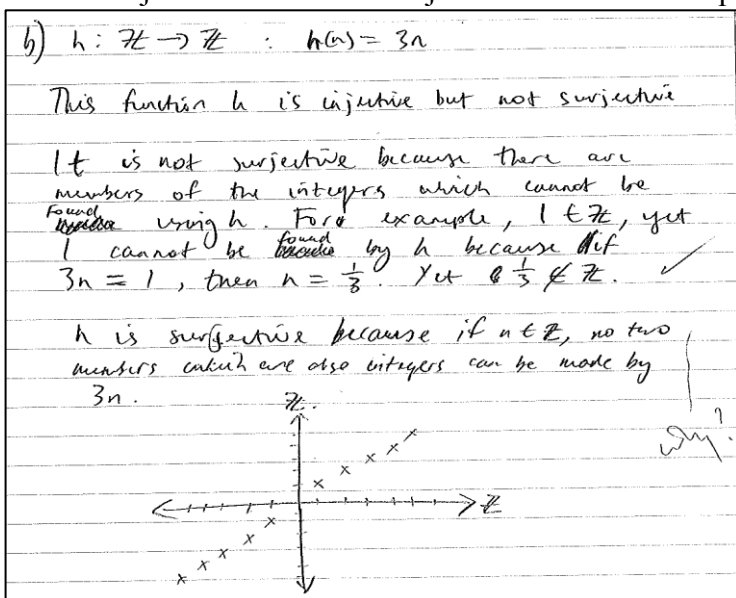 b) h: ℤ → ℤ : h(n) = 3n
This function h is injective but not surjective
It is not surjective because there are
members of the integers which cannot be
Found using h. For example, 1 ∈ ℤ, yet
1 cannot be found by h because if
3n = 1, then n = 1/3. Yet 1/3 ∉ ℤ. ✓
h is surjective because if n ∈ ℤ, no two
members which are also integers can be made by
3n.
why?
ℤ.
ℤ